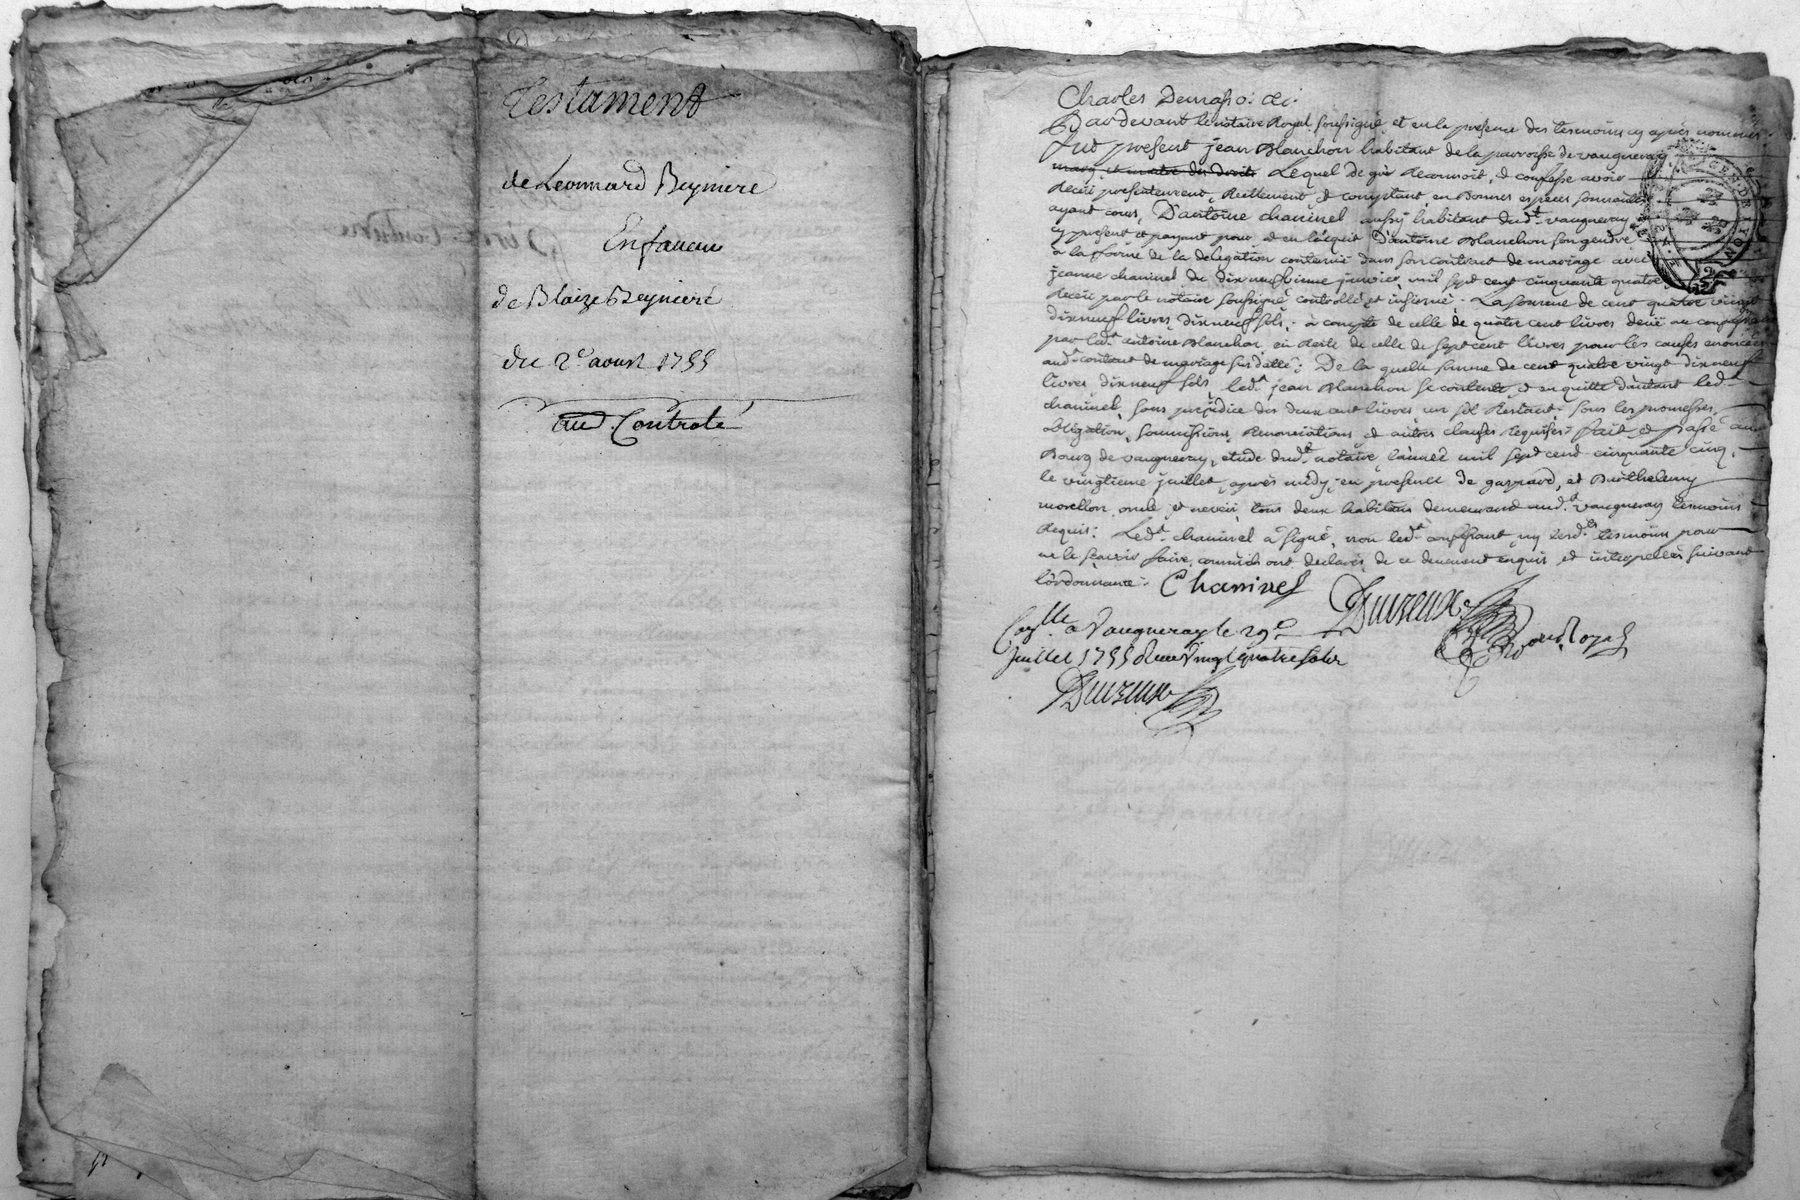 Testament
de Leonnard Beyniere
En faveur
de Blaize Beyniere
du 2e aoust 1755
au Controle
Charles
Pardevant le notaire Royal soussigné et en la presence des tesmoins cy apres nommés
fut present jean Blanchon habitant de la parroisse de vaugneray
Lequel de gré Reconnoit, & confesse avoir
Receu presentement, Reellement & comptant, en Bonnes especes sonnantes
ayant cours, D'antoine chaninel aussy habitant dud.t vaugneray
cy present et payant pour et en l'acquit D'antoine Blanchon son gendre
a la forme de la delegation contenue dans son contract de mariage avec
jeanne chaninel du dixneufvieme janvier mil sept cent cinquante quatre
Receu par le notaire soussigné controllé et insinué. La somme de cent quatre vingt
dixneuf livres, dixneuf sols, à compte de celle de quatre cent livres deüe au
par led.t antoine Blanchon, en Reste de celle de sept cent livres pour les causes enoncées
aud.t contract de mariage sus datté; De la quelle somme de cent quatre vingt dixneuf
livres dixneuf sols led.t jean Blanchon se contente, & en quitte d'autant led.t
chaninel, sans prejudice des deux cent livres un sol Restant. sous les promesses
obligation, soumissions, Renonciations et autres clauses requises: fait et passé au
Bourg de vaugneray, etude dud.t notaire l'année mil sept cent cinquante cinq,
le vingtieme juillet, apres midy, en presence de gaspard, et Barthelemy
morellon oncle et neveu, tous deux habitans demeurand aud.t vaugneray tesmoins
Requis: Led.t chaninel a signé, non led.t confessant, ny lesd.ts tesmoins pour
ne le scavoir faire, comm'ils ont declarés de ce deuement enquis et interpellés suivant
l'ordonnance.
Chaninel
Con.lle a Vaugneray le 29e
Juillet 1755 Receu vingt quatre sols